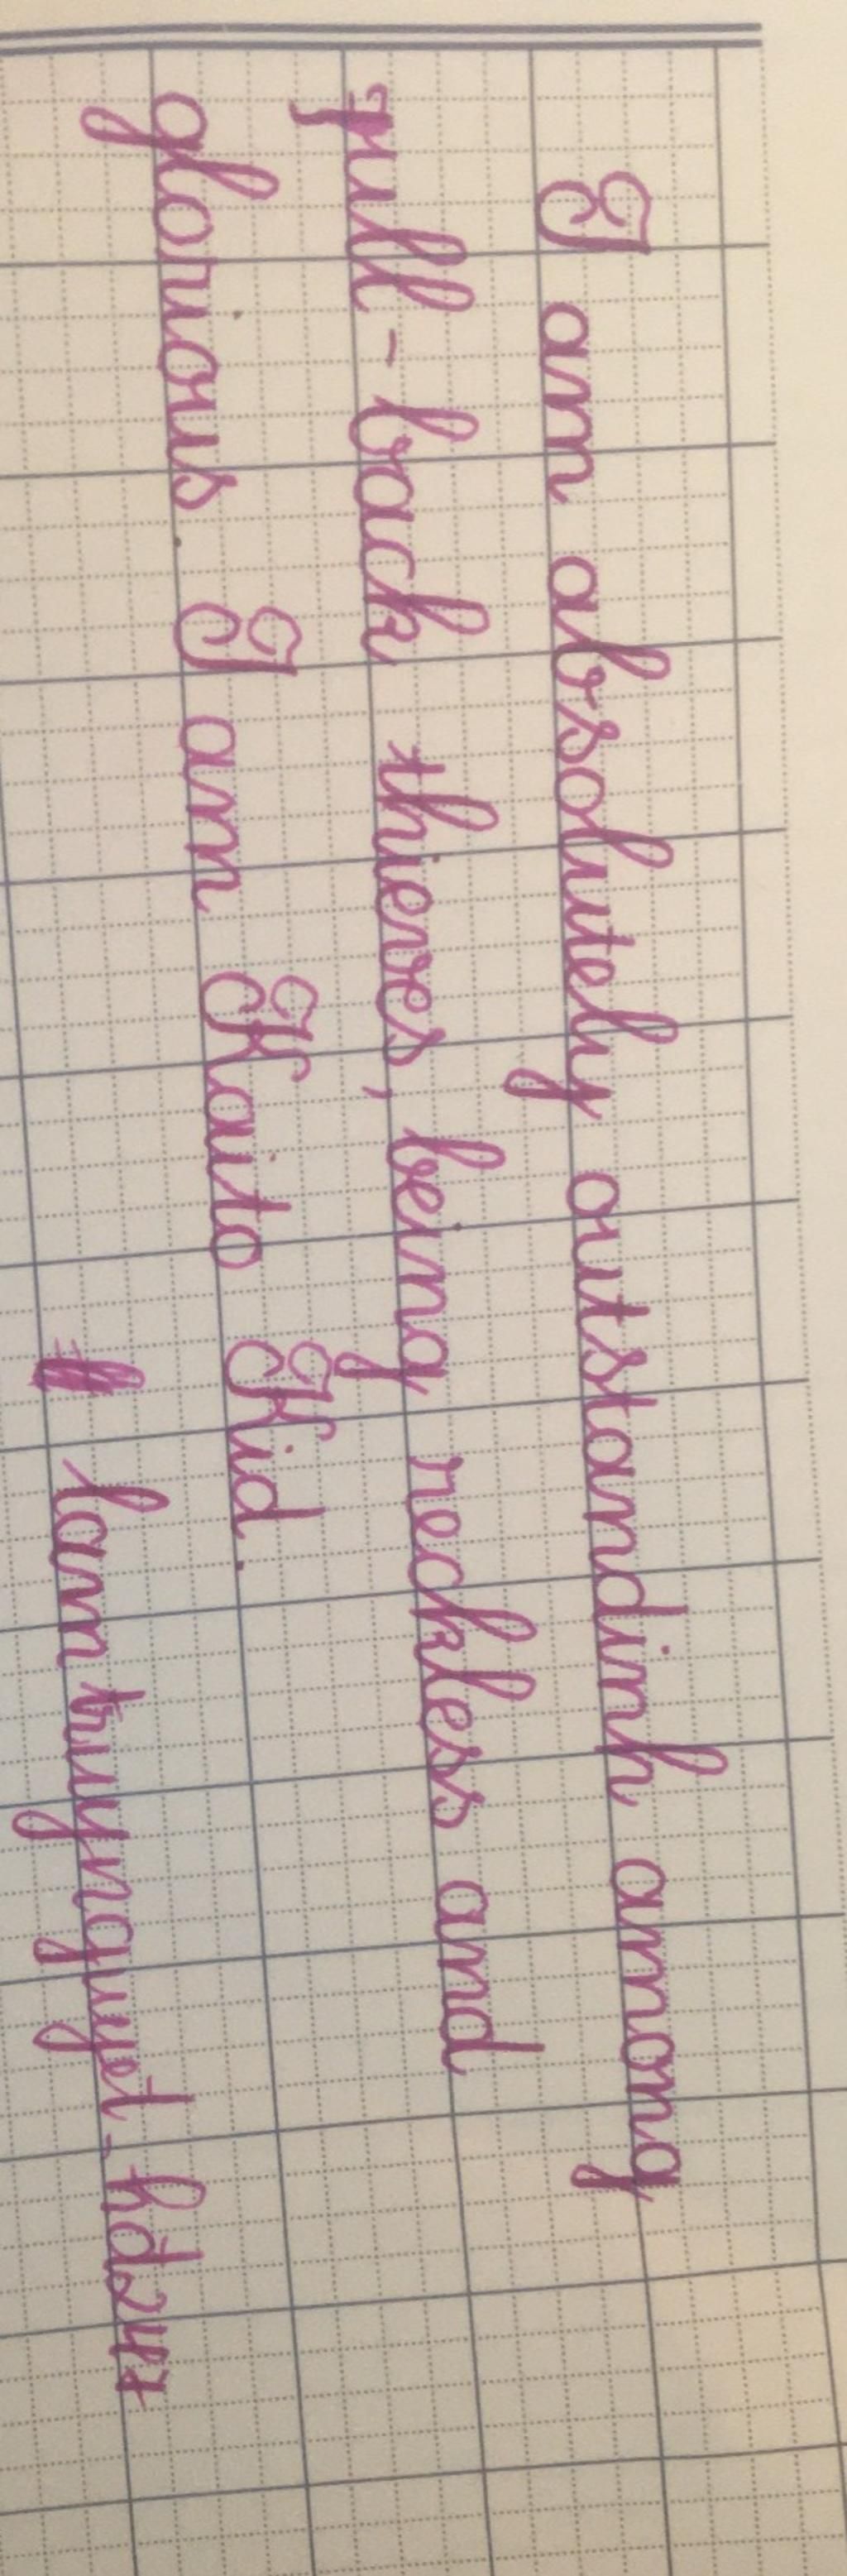 I am absolutely outstandinh among
pull-back thieves, being reckless and
glorious. I am Kaito Kid.
lamtruynguyet-hd247